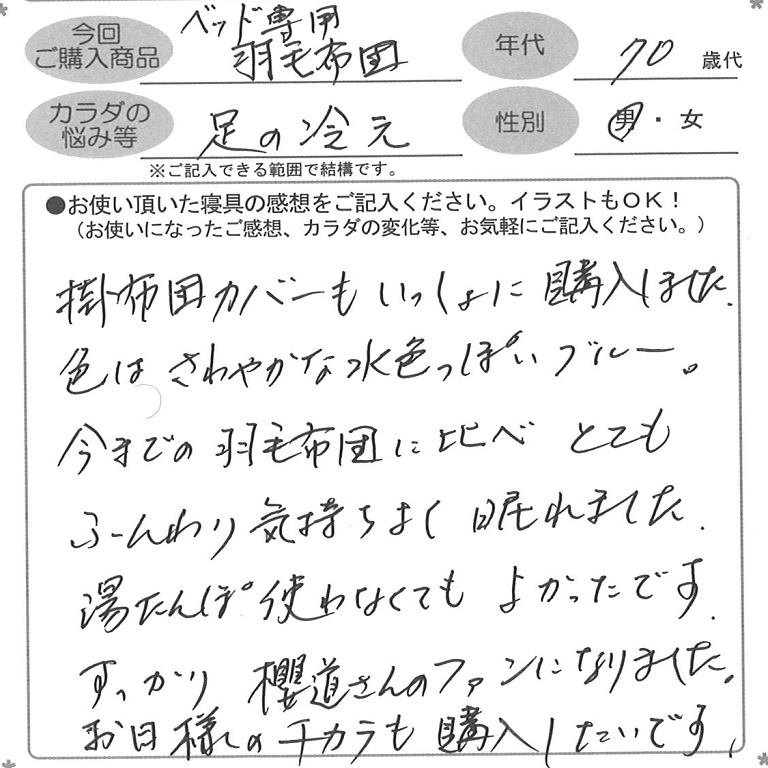 今回
ご購入商品
ベッド専用
羽毛布団
年代
70 歳代
カラダの
悩み等
足の冷え
性別
男・女
※ご記入できる範囲で結構です。
●お使い頂いた寝具の感想をご記入ください。イラストもOK!
(お使いになったご感想、カラダの変化等、お気軽にご記入ください。)
掛布団カバーもいっしょに購入しました.
色はさわやかな水色っぽいブルー。
今までの羽毛布団に比べ とても
ふーんわり気持ちよく眠れました.
湯たんぽ使わなくてもよかったです.
すっかり 櫻道さんのファンになりました。
お日様のチカラも購入したいです,